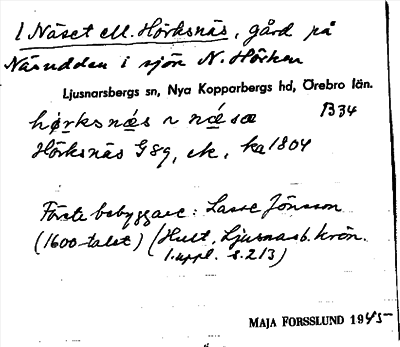 1 Näset ell. Hörksnäs, gård på
Näsudden i sjön N. Hörken
Ljusnarsbergs sn, Nya Kopparbergs hd, Örebro län.
B34
hø̱rksnä́s ~ nä́sæ
Hörksnäs G 89, ek, ka 1804
Förste bebyggare: Lasse Jönsson
(1600-talet) (Hult, Ljusnarsb. krön.
1. uppl. s. 213)
MAJA FORSSLUND 1945